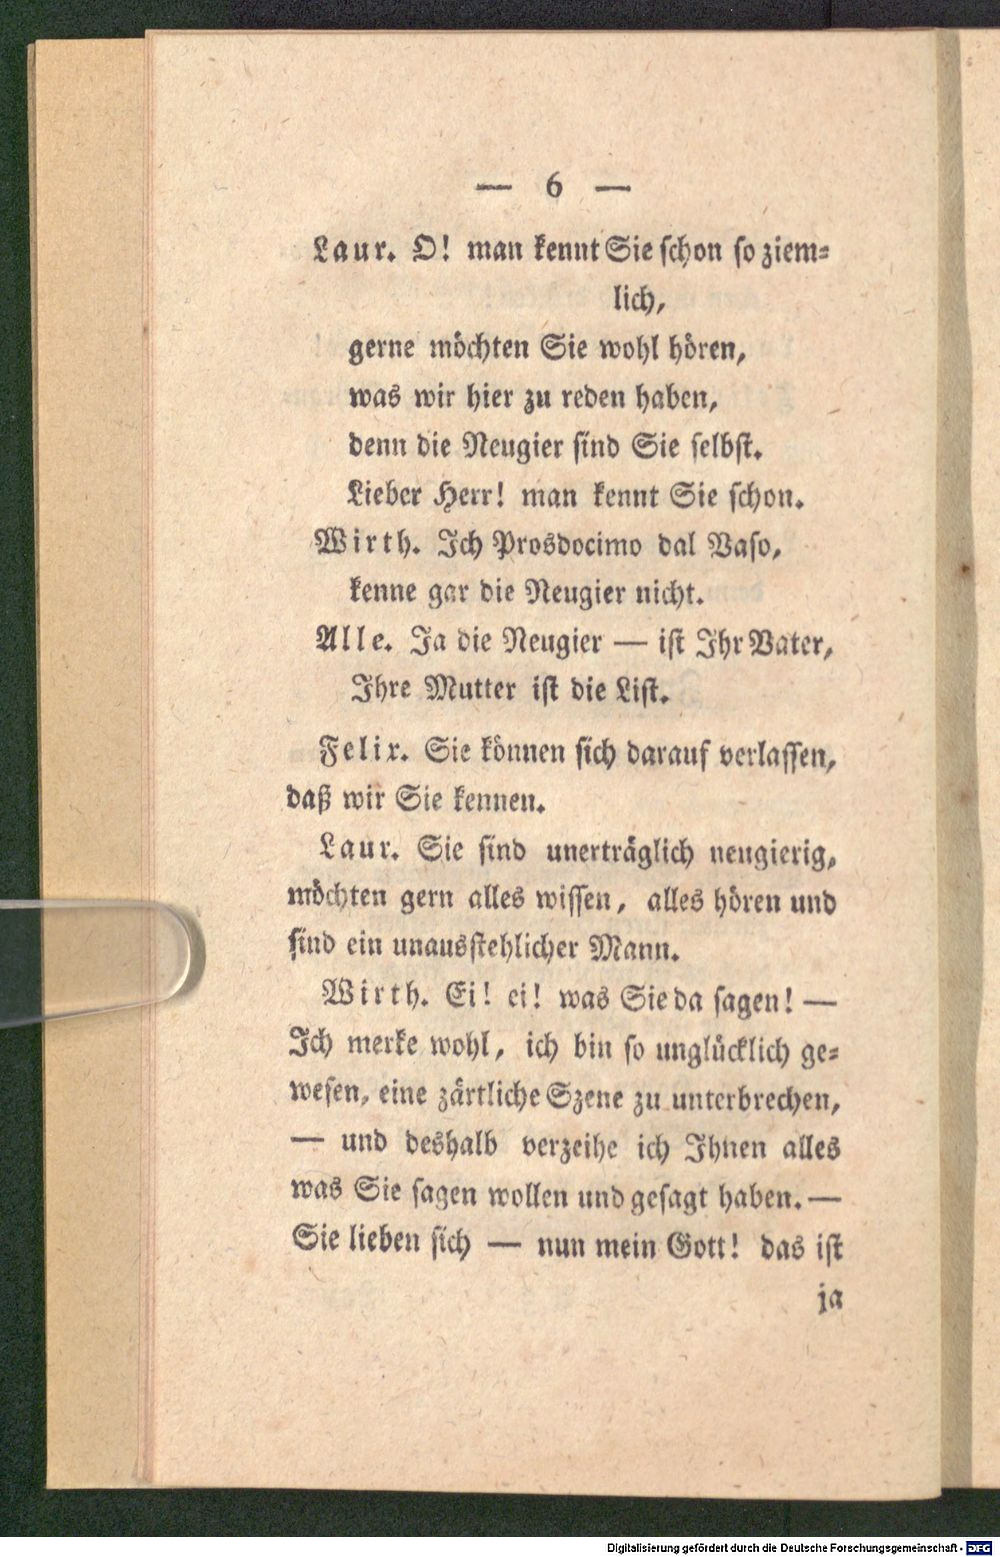 — 6 —
Laur. O! man kennt Sie schon so ziem-
lich,
gerne möchten Sie wohl hören,
was wir hier zu reden haben,
denn die Neugier sind Sie selbst.
Lieber Herr! man kennt Sie schon.
Wirth. Ich Prosdocimo dal Vaso,
kenne gar die Neugier nicht.
Alle. Ja die Neugier — ist Ihr Vater,
Ihre Mutter ist die List.
Felix. Sie können sich darauf verlassen,
daß wir Sie kennen.
Laur. Sie sind unerträglich neugierig,
möchten gern alles wissen, alles hören und
sind ein unausstehlicher Mann.
Wirth. Ei! ei! was Sie da sagen! —
Ich merke wohl, ich bin so unglücklich ge-
wesen, eine zärtliche Szene zu unterbrechen,
— und deshalb verzeihe ich Ihnen alles
was Sie sagen wollen und gesagt haben. —
Sie lieben sich — nun mein Gott! das ist
ja
Digitalisierung gefördert durch die Deutsche Forschungsgemeinschaft - DFG